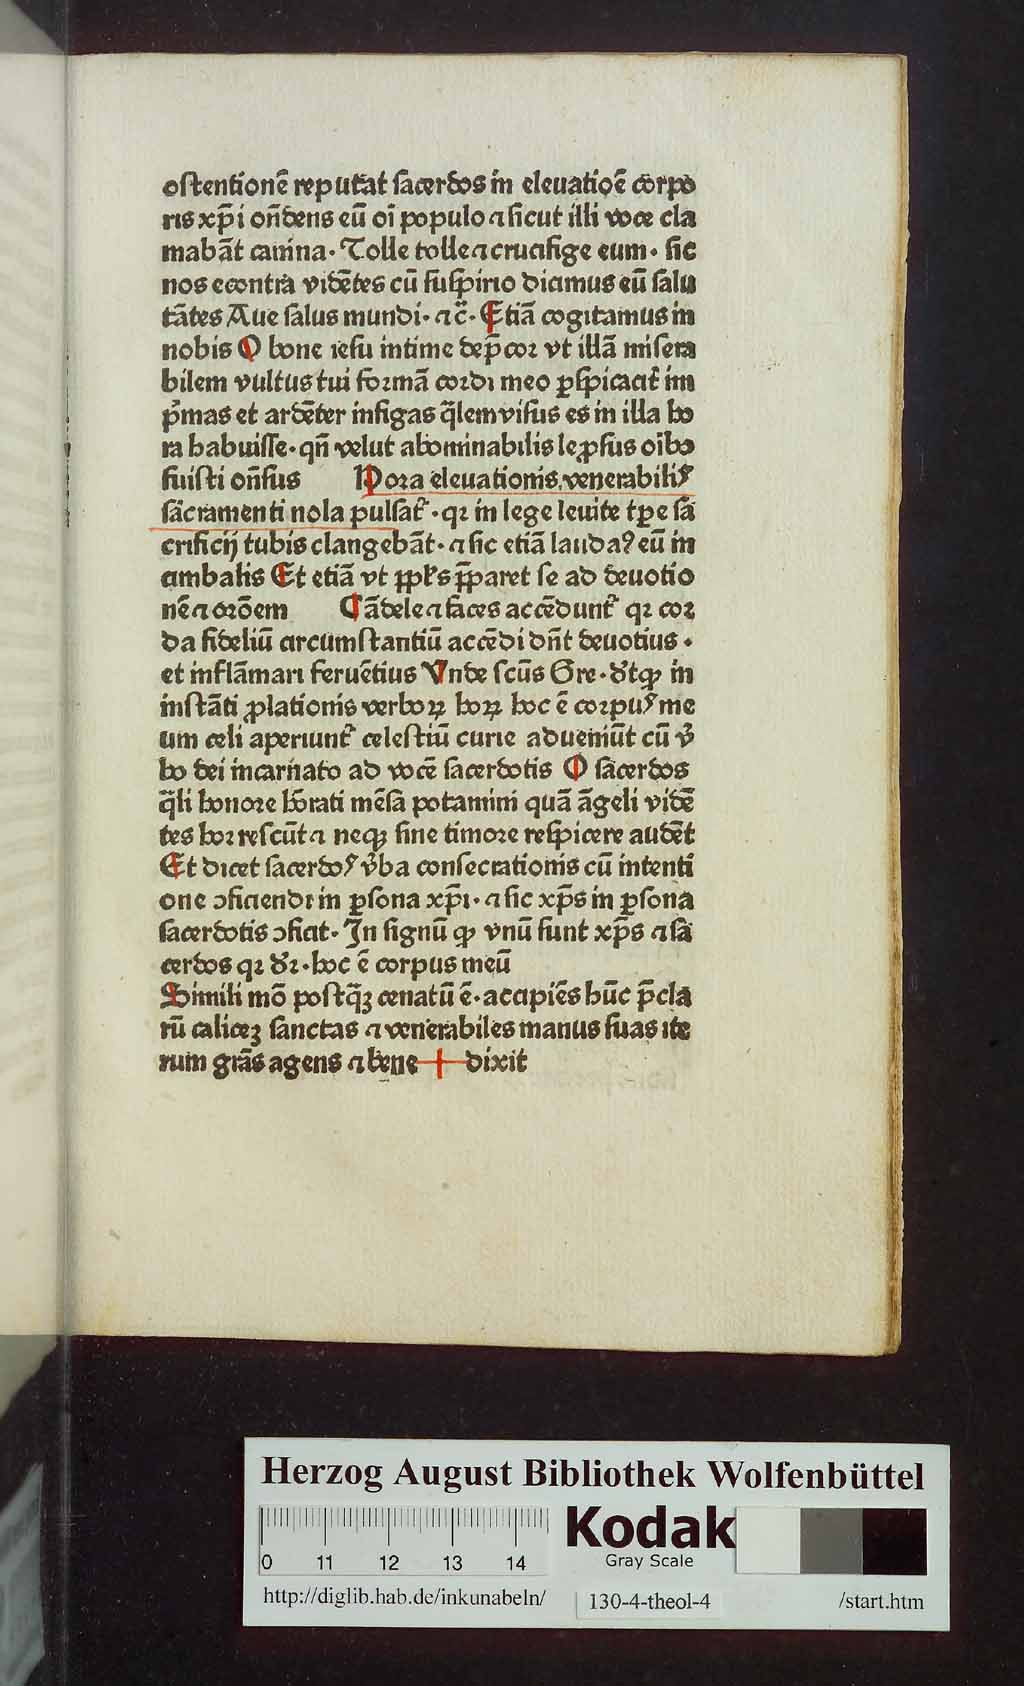 oſtentionē reputat ſacerdos in eleuatiōe corpo
ris xp̄i on̄dens eū oī populo ⁊ ſicut illi voce cla
mabāt canina· Tolle tolle ⁊ crucifige eum· ſic
nos econtra vidētes cū ſuſpirio dicamus eū ſalu
tātes Aue ſalus mundi· ⁊c̄· Etiā cogitamus in
nobis O bone ieſu intime dep̄coꝛ vt illā miſera
bilem vultus tui formā cordi meo ꝑſpicacit᷑ im
p̄mas et ardēter infigas q̄lem viſus es in illa ho
ra habuiſſe· qn̄ velut abominabilis leꝓſus oībꝰ
fuiſti on̄ſus Hora eleuationis venerabilis
ſacramenti nola pulſat᷑· qꝛ in lege leuite tꝑe ſa
crificij tubis clangebāt· ⁊ ſic etiā laudaꝰ eū in
cimbalis Et etiā vt pp̄ls p̄paret ſe ad deuotio
nē ⁊ orōem Cādele ⁊ faces accēdunt᷑ qꝛ coꝛ
da fideliū circumſtantiū accēdi dn̄t deuotius·
et inflāmari feruētius Vnde ſcūs Gre· dt̄ ꝙ in
inſtāti ꝓlationis verboꝝ hoꝝ hoc ē coꝛpus me
um celi aperiunt᷑ celeſtiū curie adueniūt cū v̄
bo dei incarnato ad vocē ſacerdotis O ſacerdos
q̄li honoꝛe hōrati mēſa potamini quā āgeli vidē
tes hoꝛreſcūt ⁊ neqꝫ ſine timoꝛe reſpicere audēt
Et dicet ſacerdos v̄ba conſecrationis cū intenti
one ꝯficiendi in ꝑſona xp̄i· ⁊ ſic xp̄s in ꝑſona
ſacerdotis ꝯficit· In ſignū ꝙ vnū ſunt xp̄s ⁊ ſa
cerdos qꝛ dꝛ̄· hoc ē corpus meū
Simili mō poſtq̄ꝫ cenatū ē· accipiēs hūc p̄cla
rū caliceꝫ ſanctas ⁊ venerabiles manus ſuas ite
rum gr̄as agens ⁊ bene + dixit
Herzog August Bibliothek Wolfenbüttel
0 11 12 13 14
Kodak
Gray Scale
http://diglib.hab.de/inkunabeln/ 130-4-theol-4 /start.htm